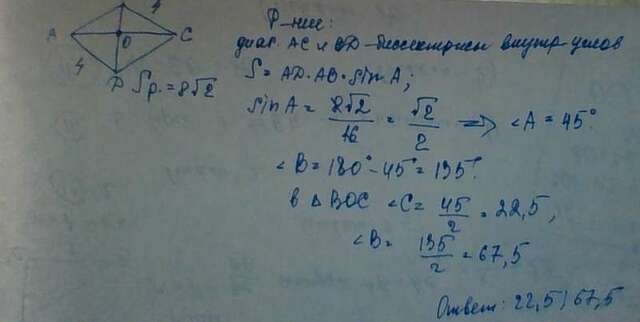 4
A
O
C
4
D
Sр. = 8√2
Р-ние:
диаг. AC и BD - биссектрисы внутр. углов
S = AD·AB·sin A;
sin A = 8√2/16 = √2/2 ⇒ ∠A = 45°
∠B = 180° - 45° = 135°
в △BOC ∠C = 45/2 = 22,5,
∠B = 135/2 = 67,5
Ответ: 22,5; 67,5